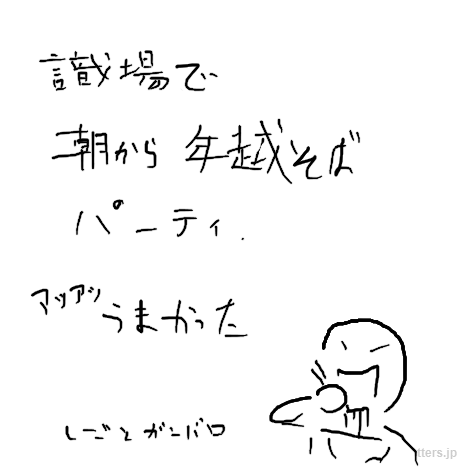 識場で
朝から 年越そば
パーティ.
アツアツ うまかった
しごと ガンバロ
tters.jp